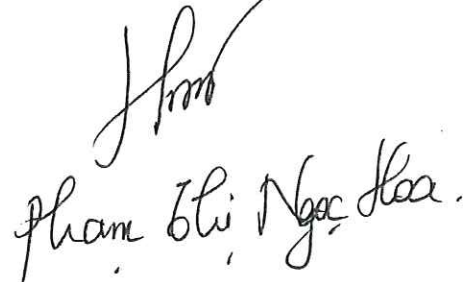 Phạm Thị Ngọc Hoa.